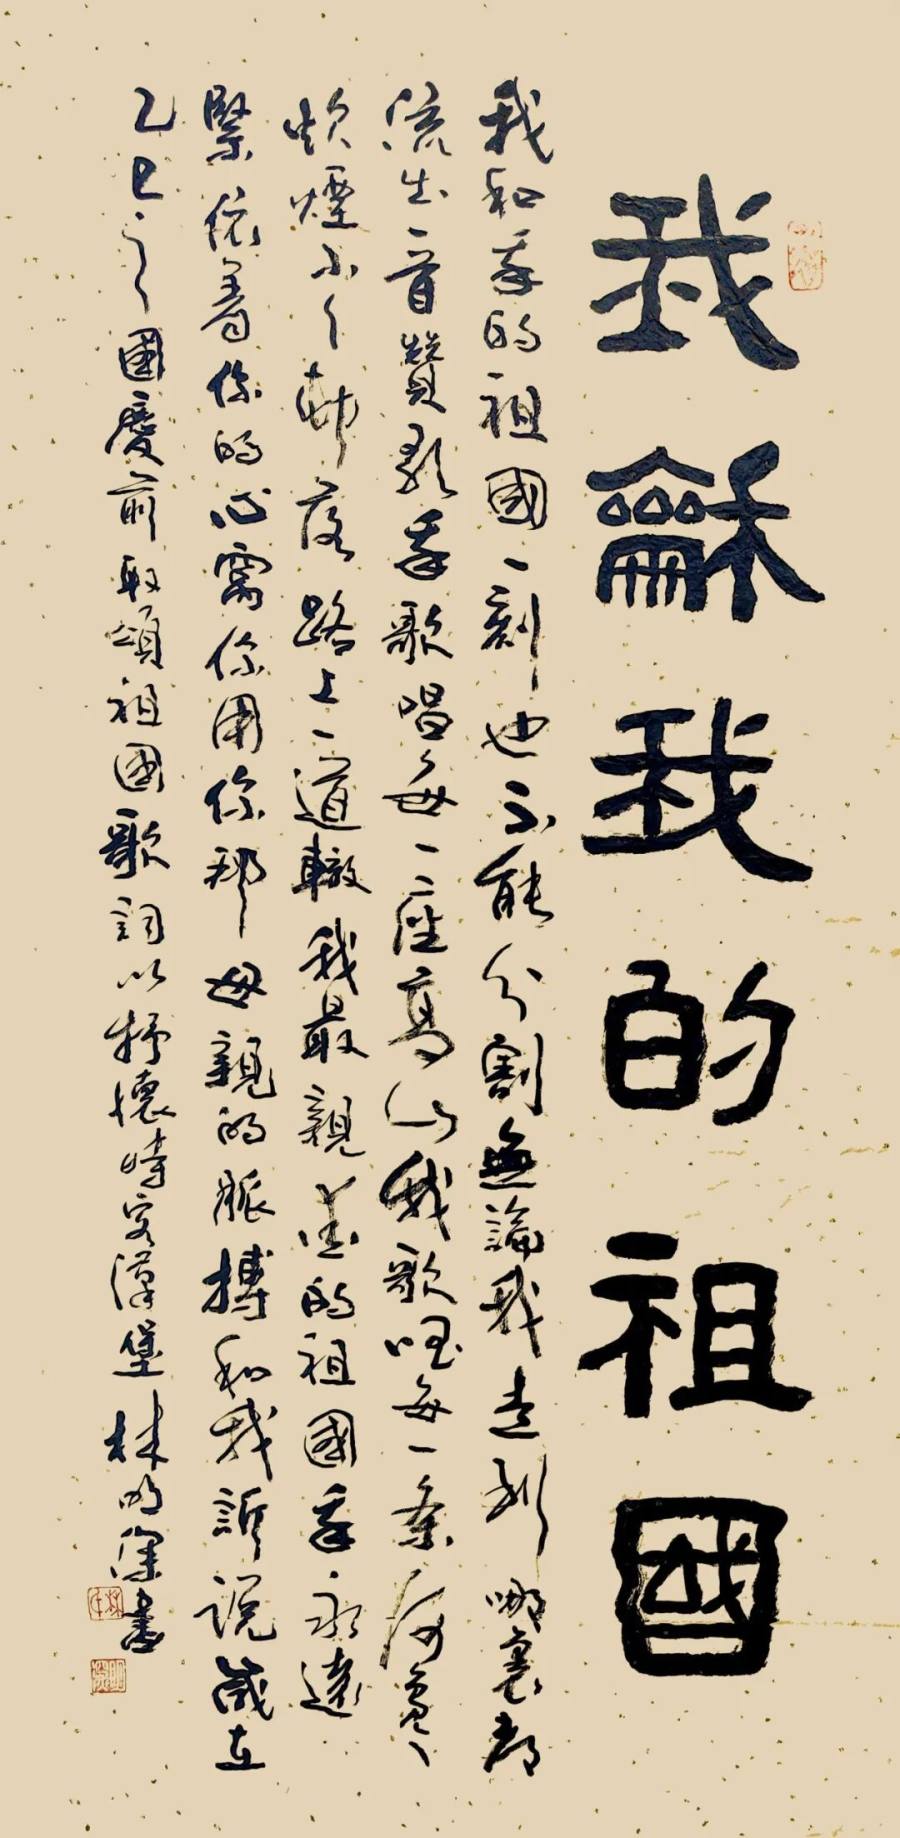 我龢我的祖國
我和我的祖國一刻也不能分割無論我走到哪裏都
流出一首贊歌我歌唱每一座高山我歌唱每一条河裊丶
炊煙小小村落路上一道轍我最親愛的祖國我永遠
緊依着你的心窩你用你那母親的脈搏和我訴說歲在
乙巳之國慶前敬頌祖國歌詞以抒懷時客漢堡林明深書